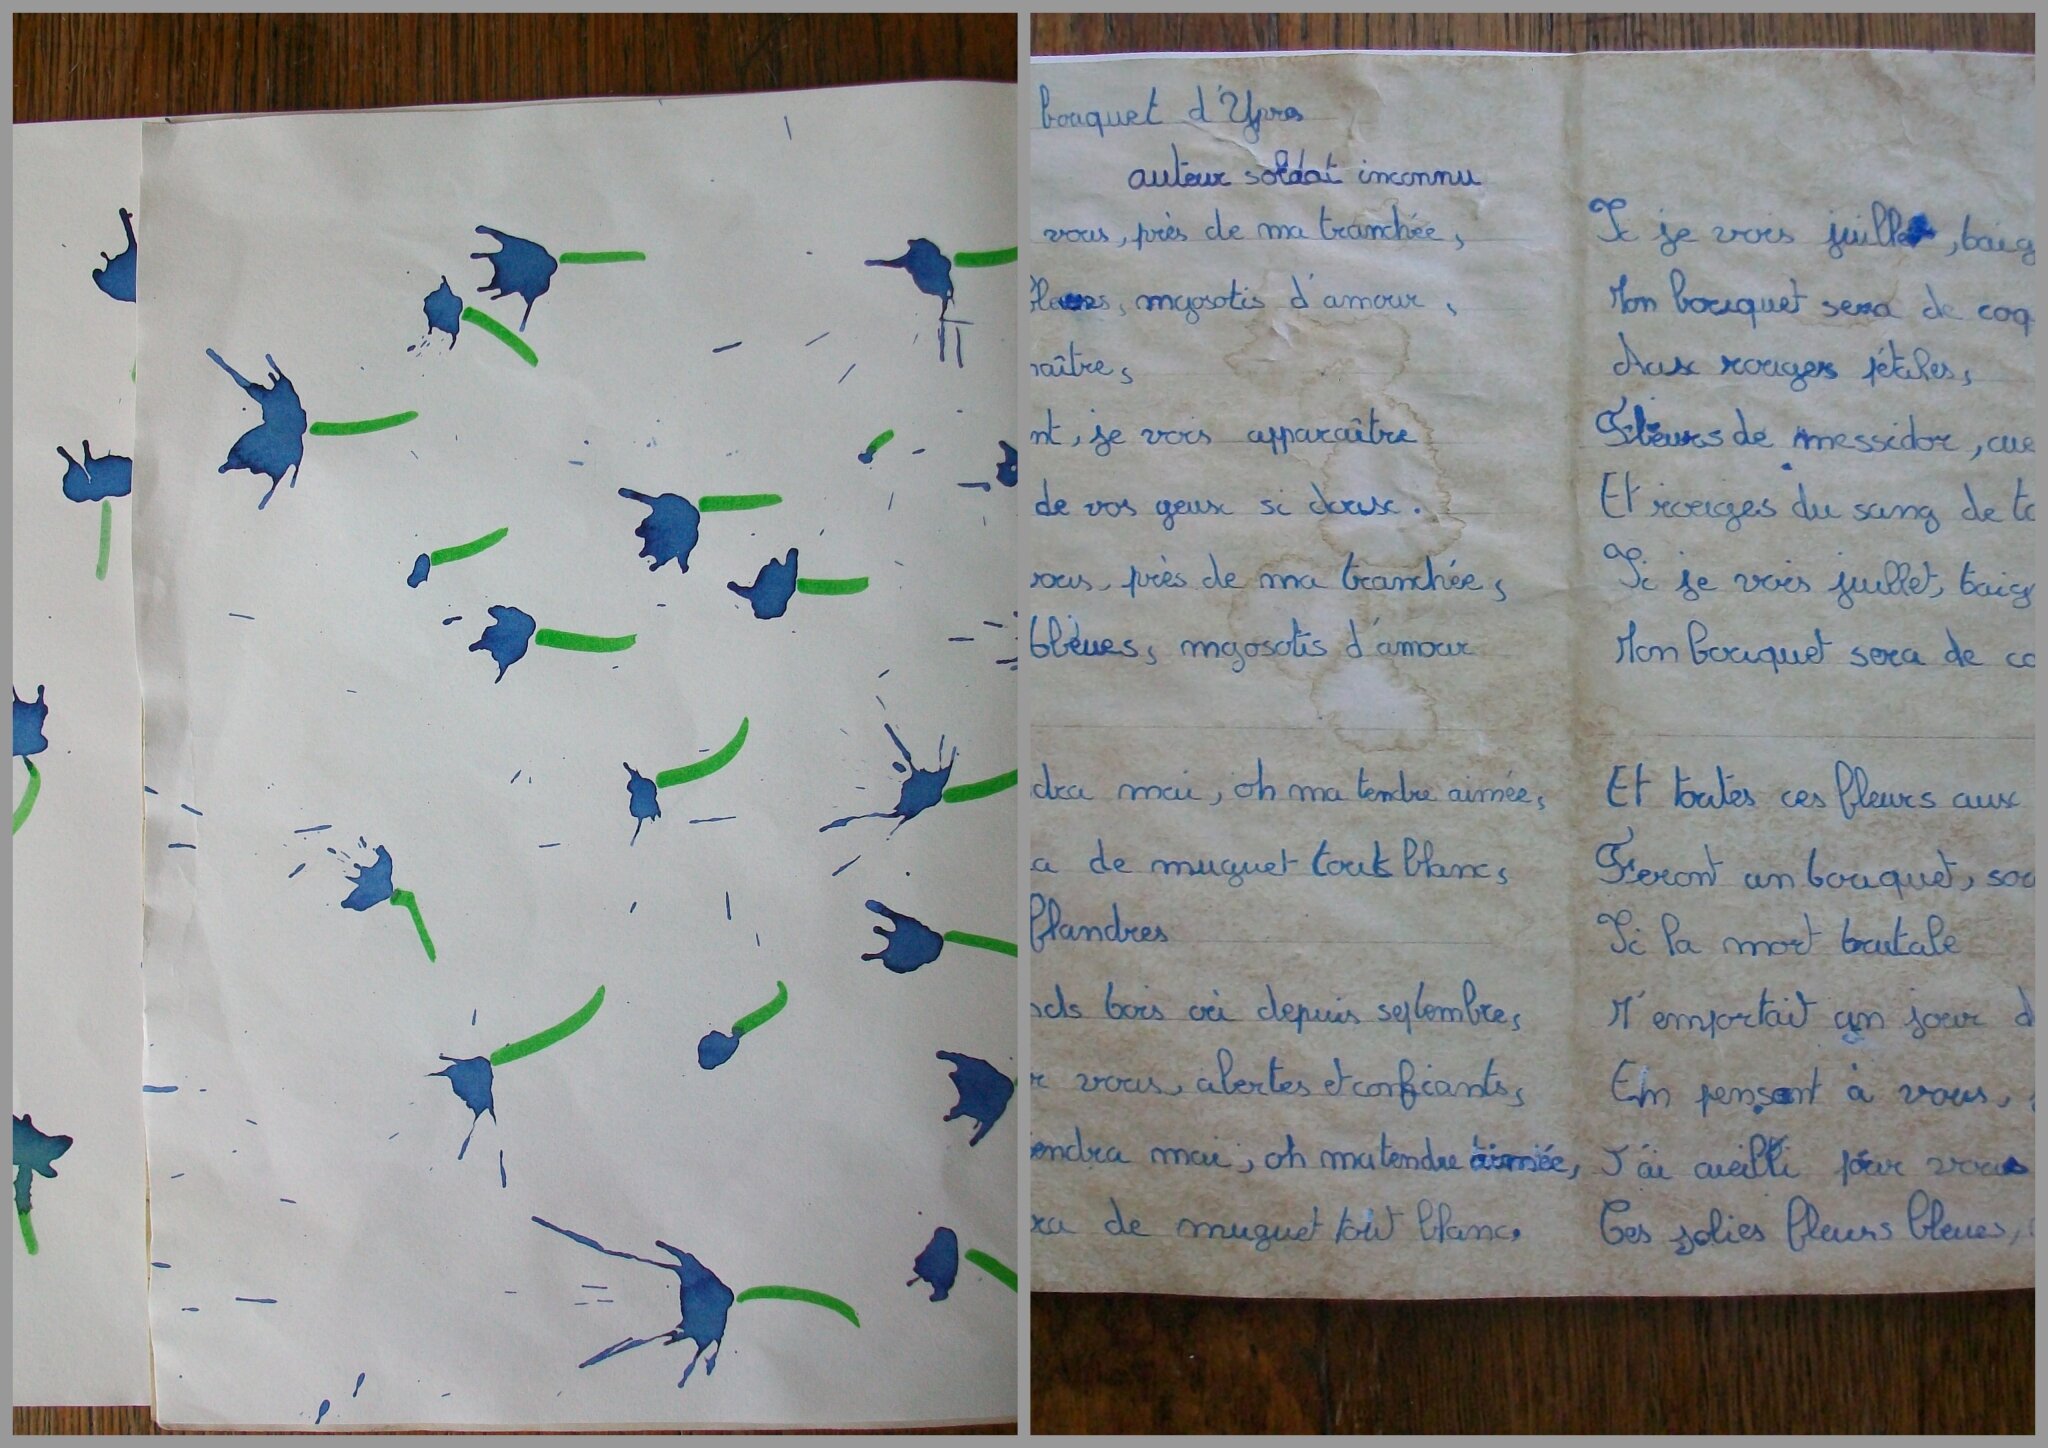 bouquet d'Ypres
auteur soldat inconnu
vous, près de ma tranchée,
fleurs, myosotis d'amour,
naître,
nt, je vois apparaître
de vos yeux si doux.
vous, près de ma tranchée,
bleues, myosotis d'amour
dra mai, oh ma tendre aimée,
a de muguet tout blanc,
flandres
nds bois où depuis septembre,
r vous, alertes et confiants,
endra mai, oh ma tendre aimée,
ra de muguet tout blanc,
Si je vois juillet, baig
Mon bouquet sera de coq
Aux rouges pétales,
Fleurs de messidor, cue
Et rouges du sang de to
Si je vois juillet, baig
Mon bouquet sera de co
Et toutes ces fleurs aux
Feront un bouquet, sou
Si la mort brutale
M'emportait un jour d
En pensant à vous,
J'ai cueilli pour vous
Ces jolies fleurs bleues,